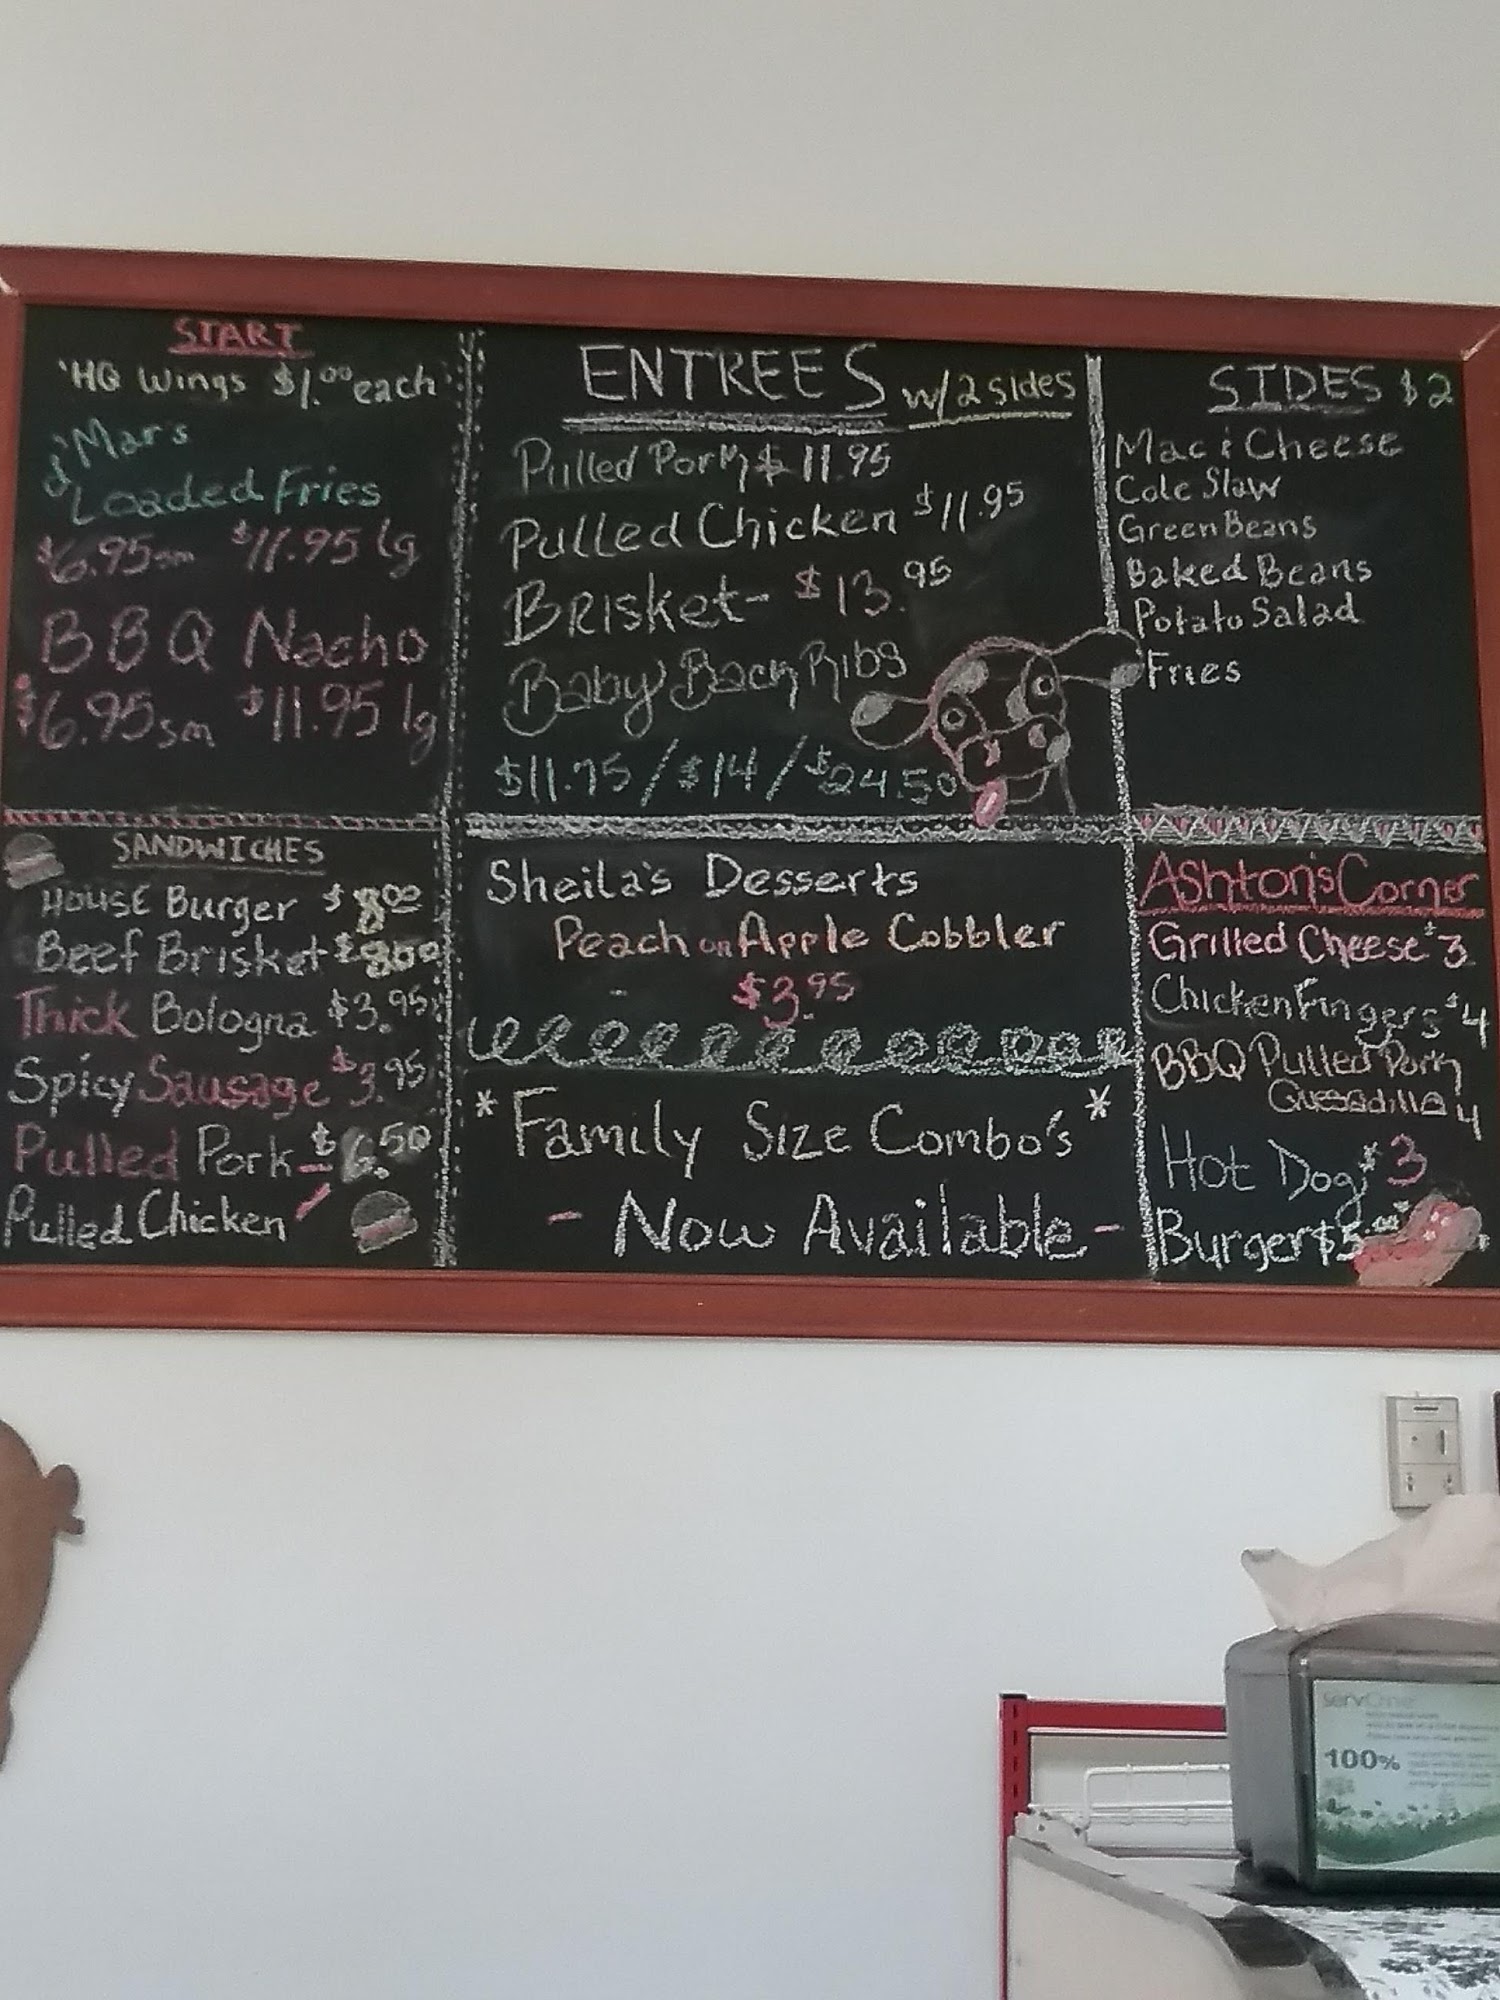 START
'HQ Wings $1.00 each'
'Mar's
Loaded Fries
$6.95 sm $11.95 lg
BBQ Nacho
$6.95 sm $11.95 lg
SANDWICHES
House Burger $8.00
Beef Brisket $8.00
Thick Bologna $3.95
Spicy Sausage $3.95
Pulled Pork - $6.50
Pulled Chicken
ENTREES w/2 sides
Pulled Pork $11.95
Pulled Chicken $11.95
Brisket - $13.95
Baby Back Ribs
$11.75/$14/$24.50
Sheila's Desserts
Peach or Apple Cobbler
$3.95
*Family Size Combo's*
- Now Available -
SIDES $2
Mac & Cheese
Cole Slaw
Green Beans
Baked Beans
Potato Salad
Fries
Ashton's Corner
Grilled Cheese $3
Chicken Fingers $4
BBQ Pulled Pork
Quesadilla 4
Hot Dog $3
Burger $5.00
100%